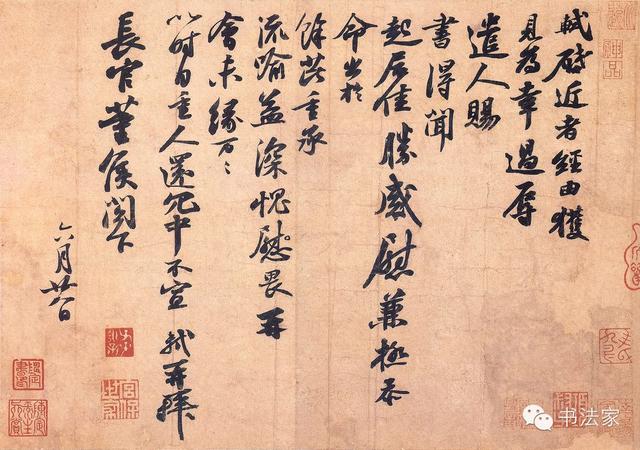 軾啟近者經由獲
見為幸過辱
遣人賜
書得聞
起居佳勝感慰兼極忝
命出於
餘芘重承
流喻益深愧慰畏再
會未緣萬〻
以時自重人還冗中不宣 軾再拜
長官董侯閣下
六月廿八日
书法家